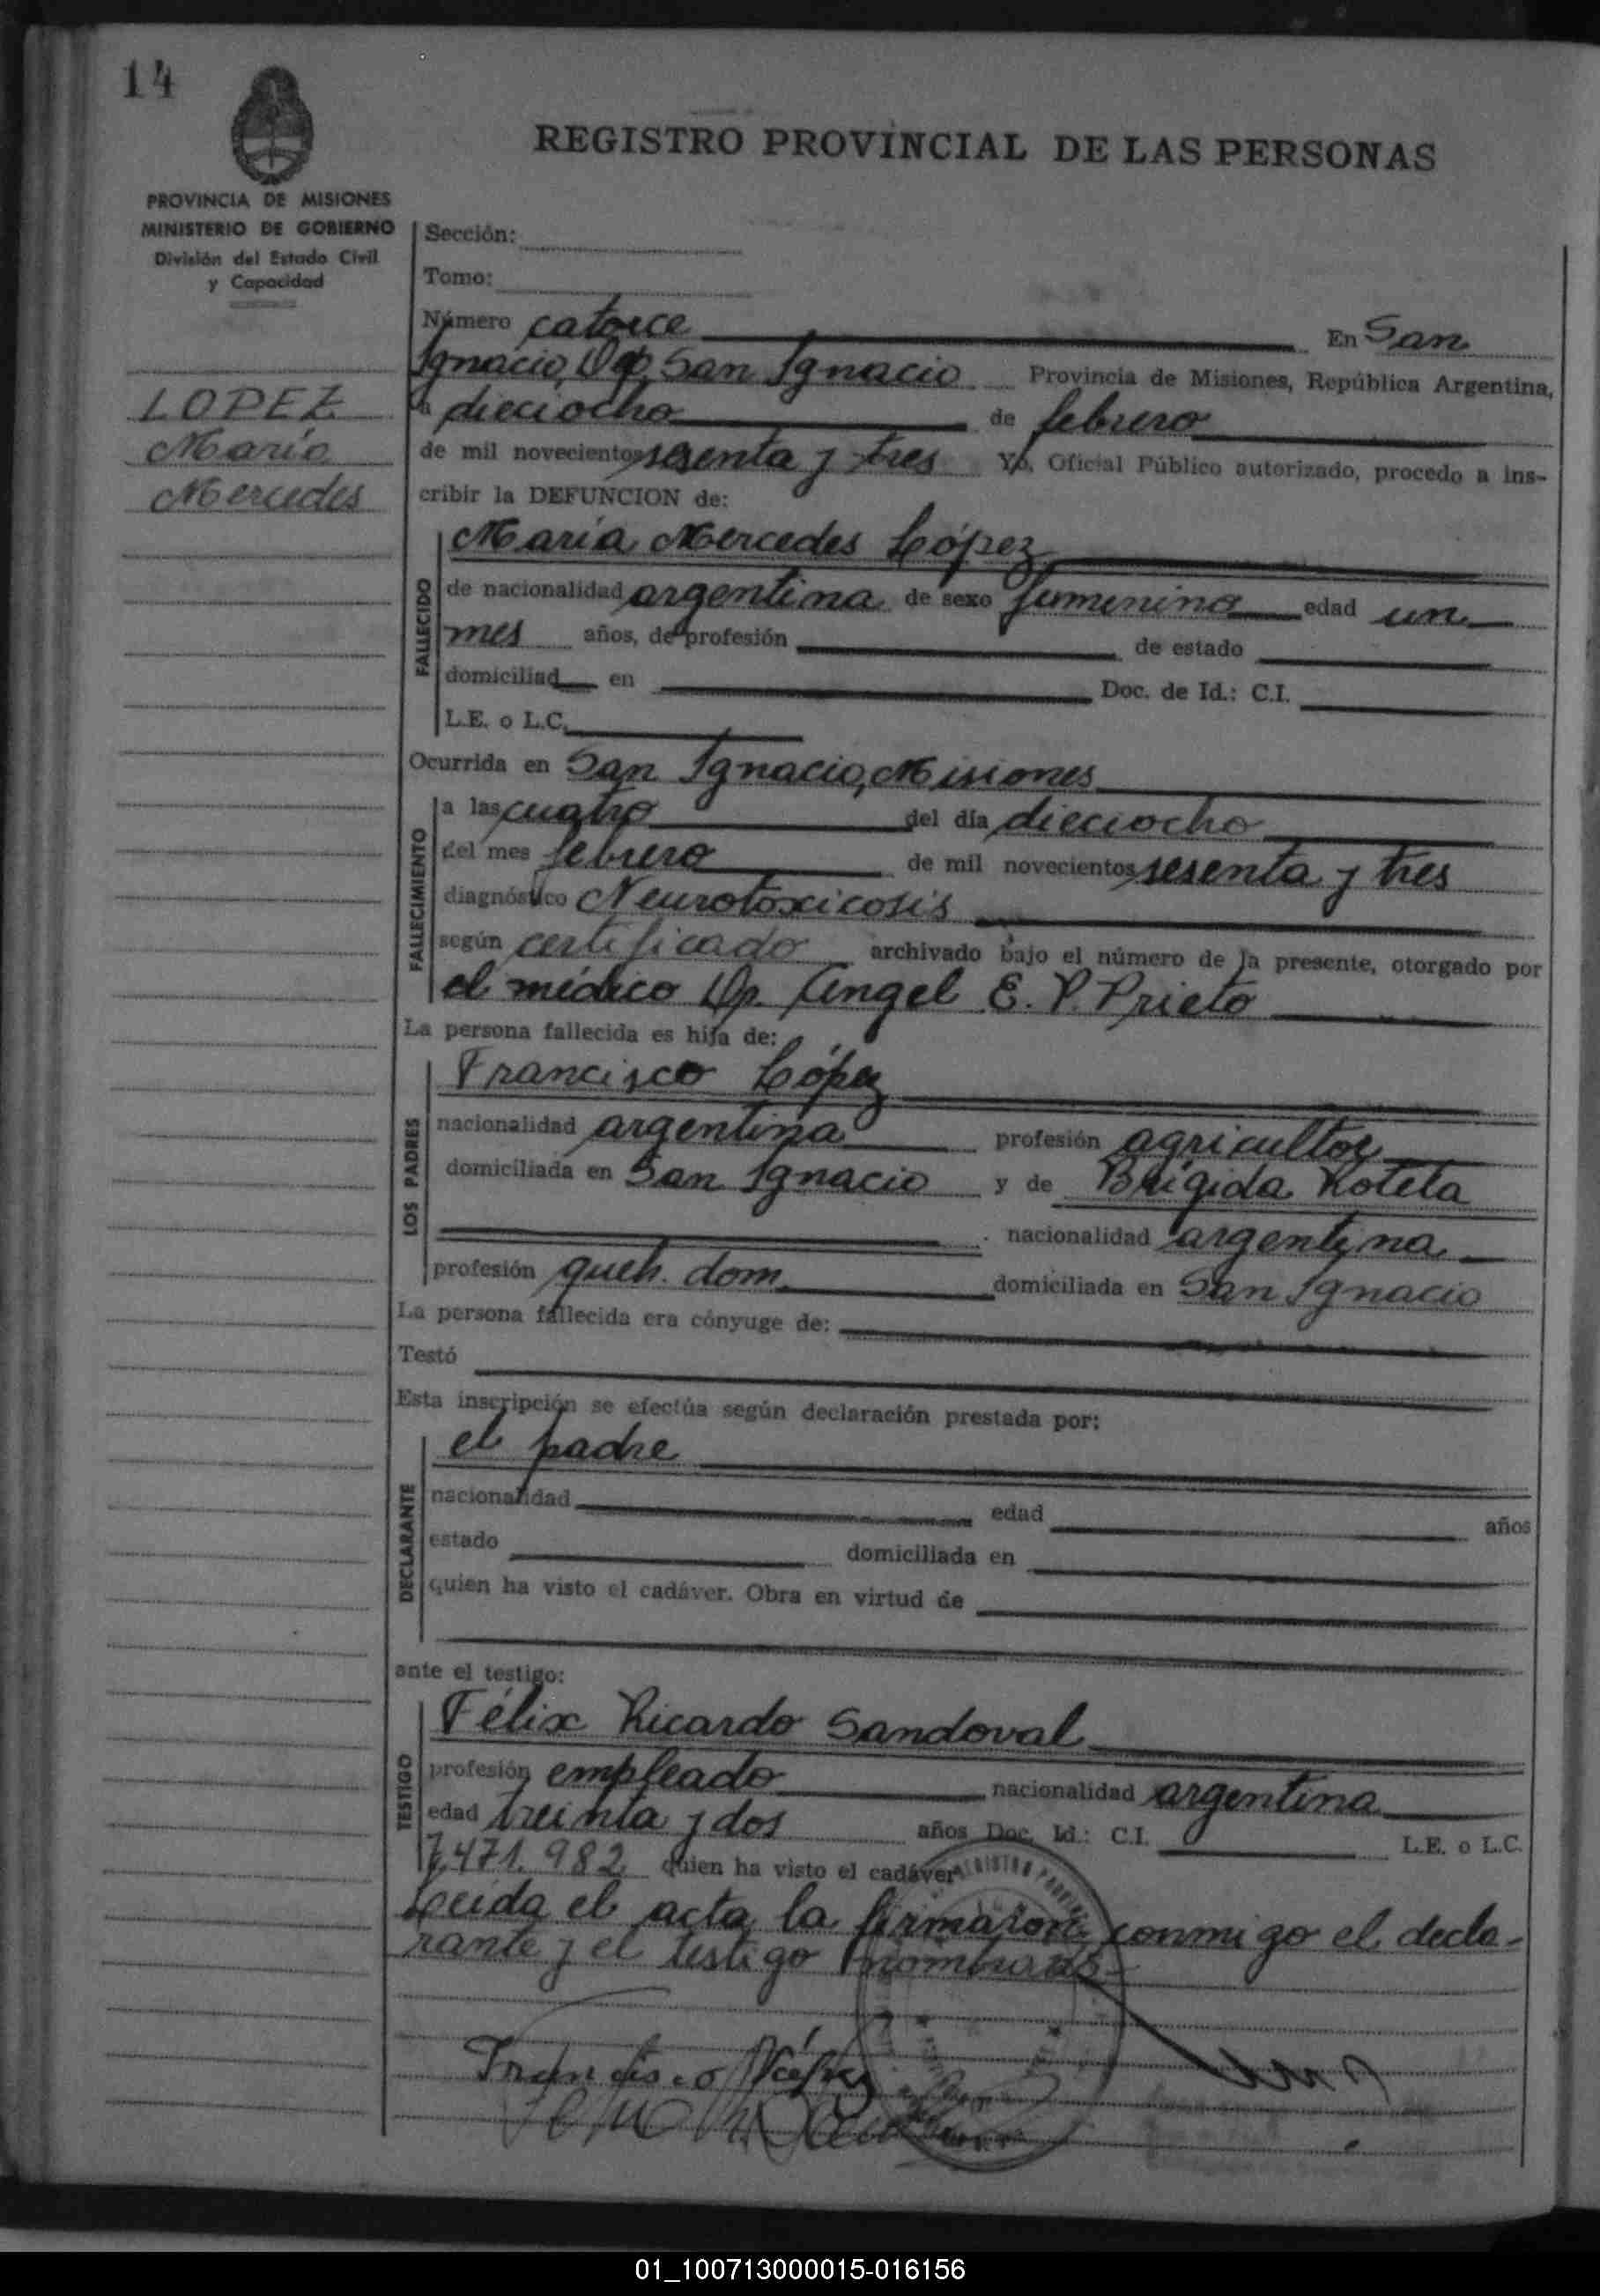 14
REGISTRO PROVINCIAL DE LAS PERSONAS
PROVINCIA DE MISIONES
MINISTERIO DE GOBIERNO
División del Estado Civil
y Capacidad
LOPEZ
María
Mercedes
Sección:
Tomo:
Número catorce En San
Ignacio, Dep. San Ignacio Provincia de Misiones, República Argentina,
a dieciocho de febrero
de mil novecientos sesenta y tres Yo, Oficial Público autorizado, procedo a ins-
cribir la DEFUNCION de:
FALLECIDO
María Mercedes López
de nacionalidad argentina de sexo femenino edad un
mes años, de profesión de estado
domiciliad en Doc. de Id.: C.I.
L.E. o L.C.
Ocurrida en San Ignacio, Misiones
FALLECIMIENTO
a las cuatro del día dieciocho
del mes febrero de mil novecientos sesenta y tres
diagnóstico Neurotoxicosis
según certificado archivado bajo el número de la presente, otorgado por
el médico Dr. Angel E. P. Prieto
La persona fallecida es hija de:
LOS PADRES
Francisco López
nacionalidad argentina profesión agricultor
domiciliada en San Ignacio y de Brígida Rotela
nacionalidad argentina
profesión queh. dom. domiciliada en San Ignacio
La persona fallecida era cónyuge de:
Testó
Esta inscripción se efectúa según declaración prestada por:
DECLARANTE
el padre
nacionalidad edad años
estado domiciliada en
quien ha visto el cadáver. Obra en virtud de
ante el testigo:
TESTIGO
Félix Ricardo Sandoval
profesión empleado nacionalidad argentina
edad treinta y dos años Doc. Id.: C.I. L.E. o L.C.
7.471.982 quien ha visto el cadáver
Leída el acta la firmaron conmigo el decla-
rante y el testigo nombrados-
Francisco López
01_100713000015-016156